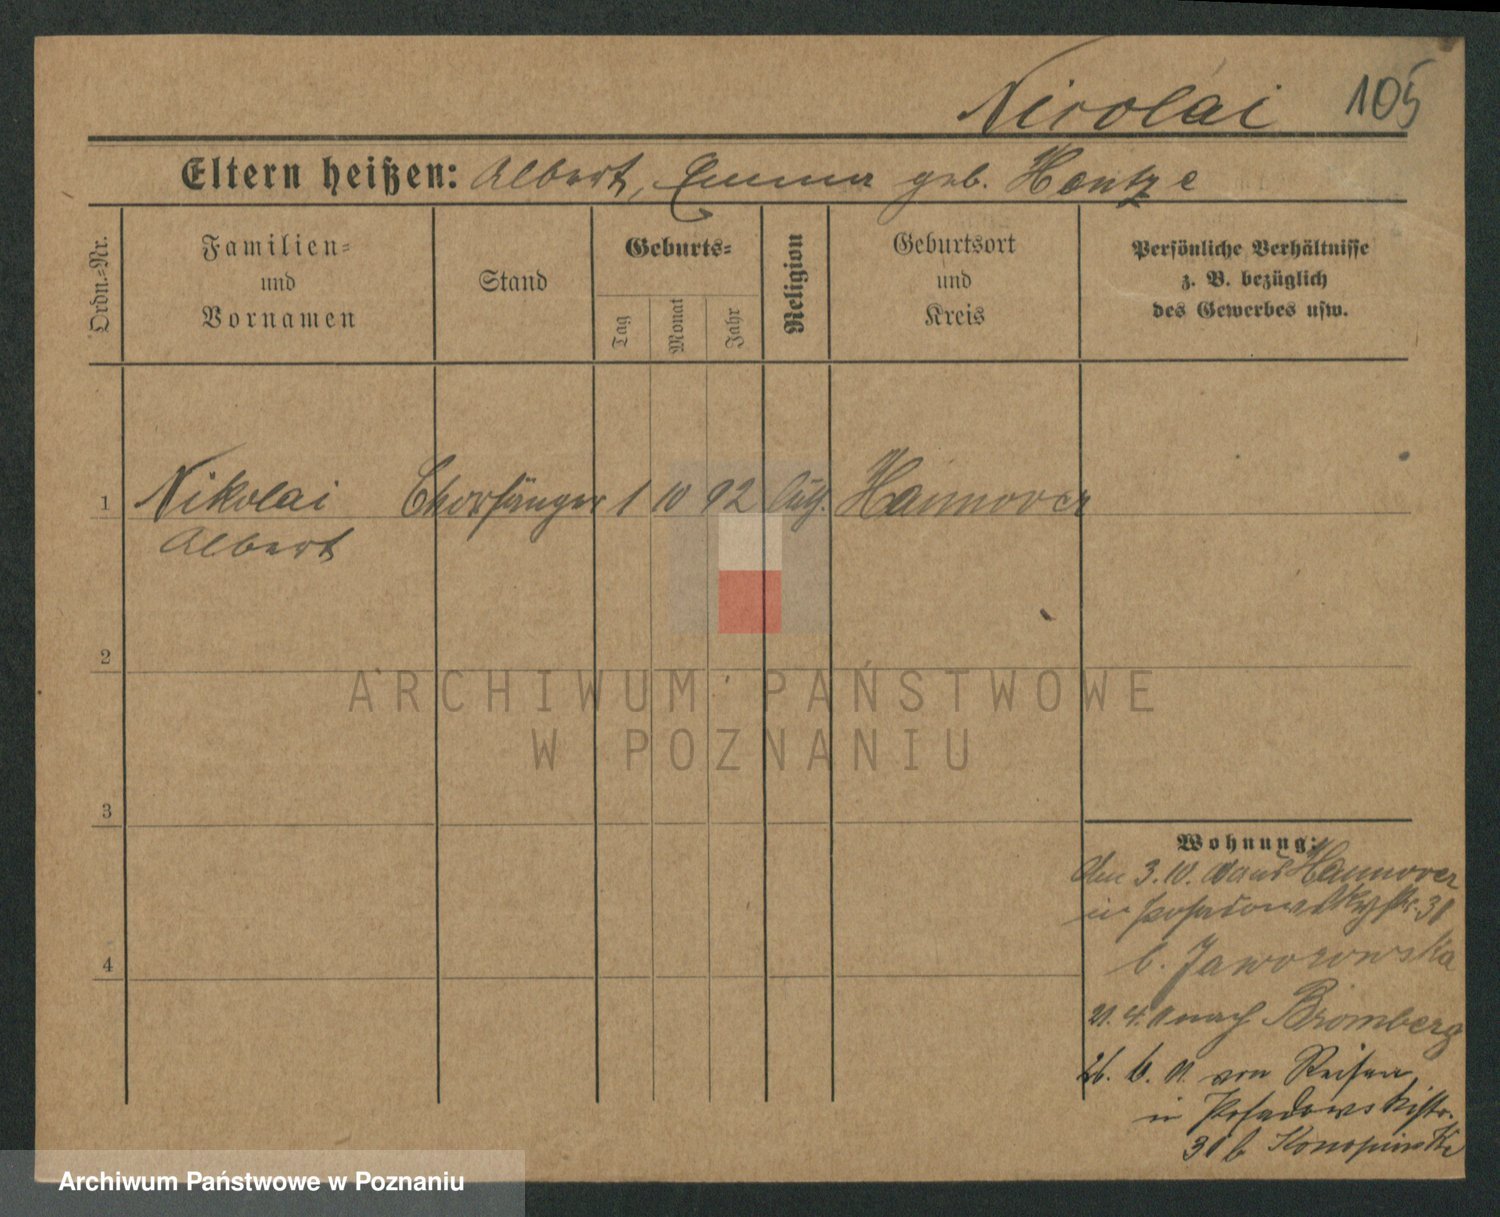 Nicolai 105
Eltern heißen: Albert, Emma geb. Hentze
Ordn.-Nr.
Familien-
und
Vornamen
Stand
Geburts-
Tag
Monat
Jahr
Religion
Geburtsort
und
Kreis
Persönliche Verhältnisse
z. B. bezüglich
des Gewerbes usw.
1 Nikolai Chorsänger 1 10 92 luth. Hannover
Albert
2
3
4
ARCHIWUM PAŃSTWOWE
W POZNANIU
Wohnung:
den 3.10. aus Hannover
in Posadowskystr. 31
b. Jaworowska
21. 4. 11 nach Bromberg
26. 6. 11. von Reisen
in Posadowskistr.
31 b Konopinski
Archiwum Państwowe w Poznaniu